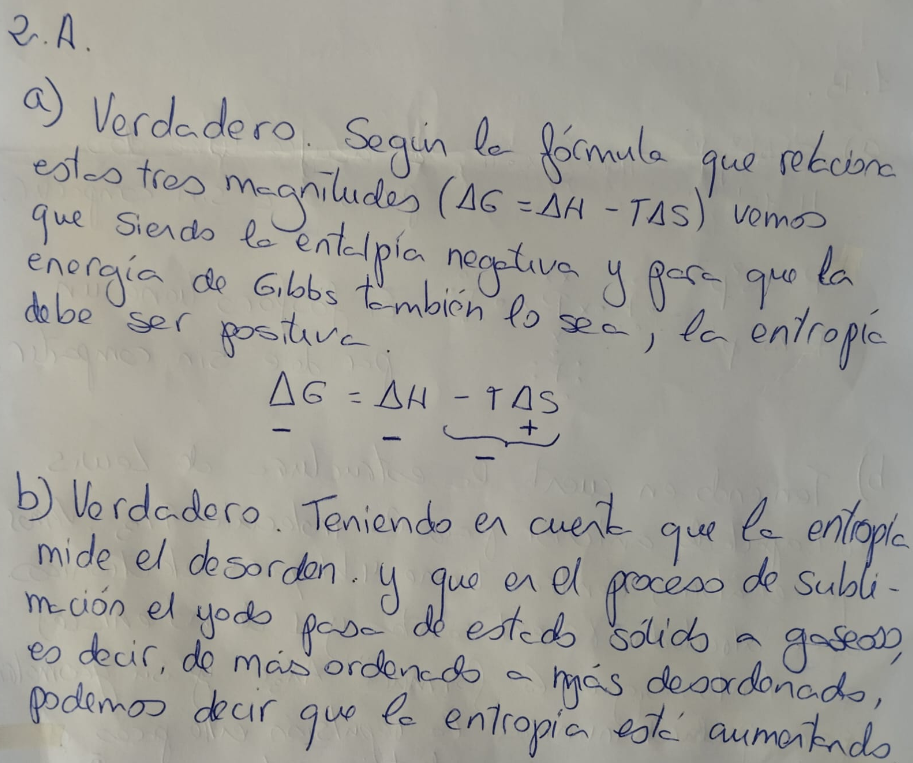 2.A.
a) Verdadero. Según la fórmula que relaciona
estas tres magnitudes (ΔG = ΔH - TΔS) vemos
que siendo la entalpía negativa y para que la
energía de Gibbs también lo sea, la entropía
debe ser positiva.
ΔG = ΔH - TΔS
- - +
-
b) Verdadero. Teniendo en cuenta que la entropía
mide el desorden. y que en el proceso de subli-
mación el yodo pasa de estado sólido a gaseoso,
es decir, de más ordenado a más desordenado,
podemos decir que la entropía está aumentando